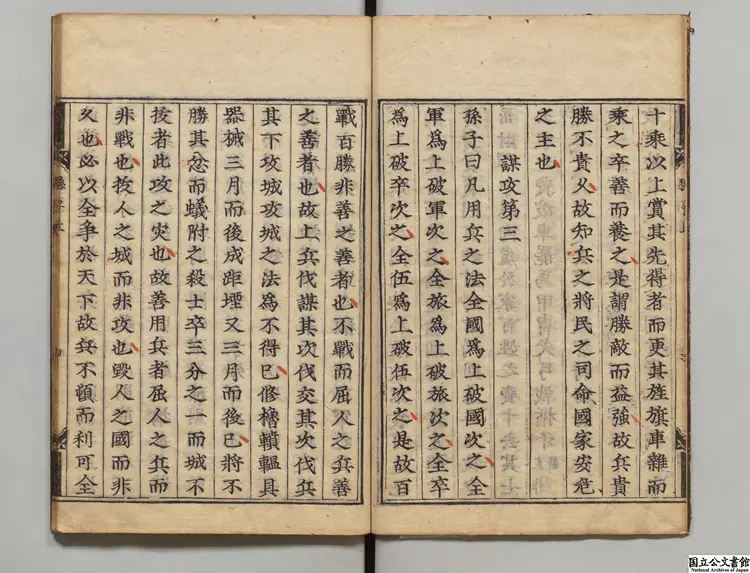 十乘以上賞其先得者而更其旌旗車雜而
乘之卒善而養之是謂勝敵而益強故兵貴
勝不貴久故知兵之將民之司命國家安危
之主也
謀攻第三
孫子曰凡用兵之法全國爲上破國次之全
軍爲上破軍次之全旅爲上破旅次之全卒
爲上破卒次之全伍爲上破伍次之是故百
戰百勝非善之善者也不戰而屈人之兵善
之善者也故上兵伐謀其次伐交其次伐兵
其下攻城攻城之法為不得已修櫓轒轀具
器械三月而後成距堙又三月而後已將不
勝其忿而蟻附之殺士卒三分之一而城不
拔者此攻之災也故善用兵者屈人之兵而
非戰也拔人之城而非攻也毀人之國而非
久也必以全爭於天下故兵不頓而利可全
国立公文書館
National Archives of Japan